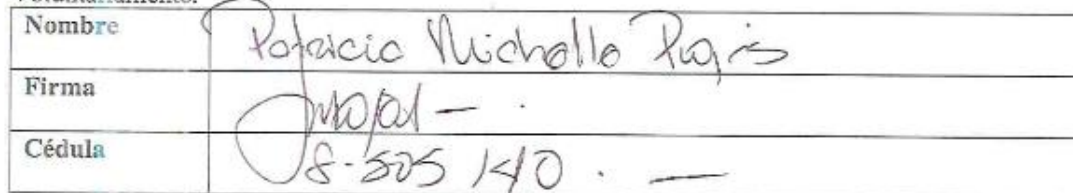 Nombre Patricia Michelle Pugis
Firma
Cédula 8-505 140 . —